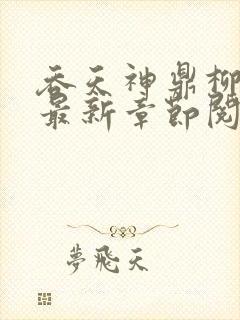 吞天神鼎柳
最新章節閱
夢飛天